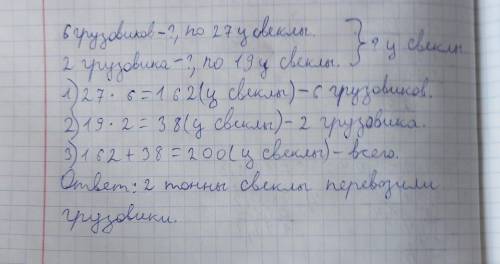 6 грузовиков-?, по 27 ц свеклы.
2 грузовика-?, по 19 ц свеклы. } ? ц свеклы
1) 27 · 6 = 162 (ц свеклы) - 6 грузовиков.
2) 19 · 2 = 38 (ц свеклы) - 2 грузовика.
3) 162 + 38 = 200 (ц свеклы) - всего.
Ответ: 2 тонны свеклы перевозили
грузовики.